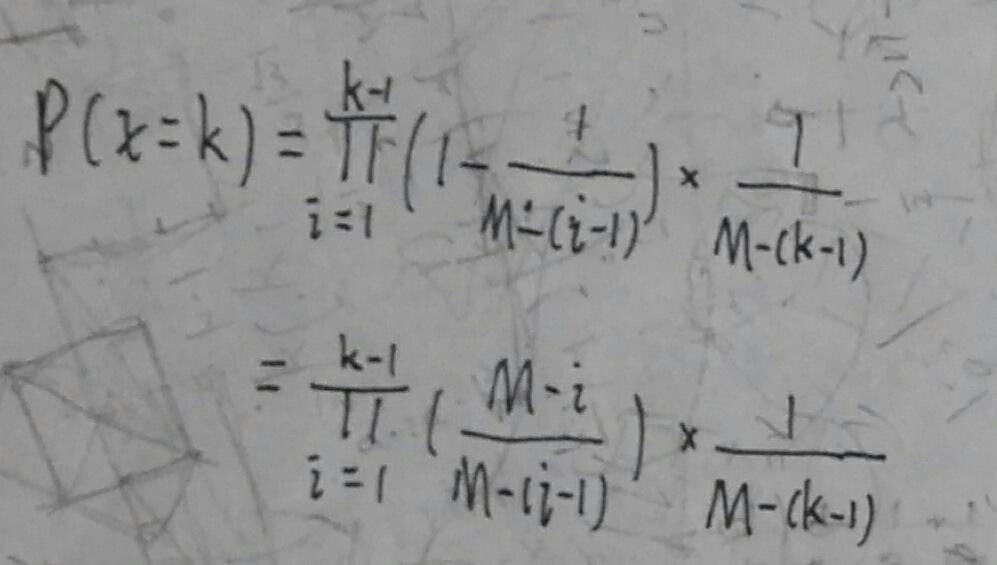 P(x=k) = ∏_{i=1}^{k-1} (1 - \frac{1}{M-(i-1)}) × \frac{1}{M-(k-1)}
= ∏_{i=1}^{k-1} (\frac{M-i}{M-(i-1)}) × \frac{1}{M-(k-1)}